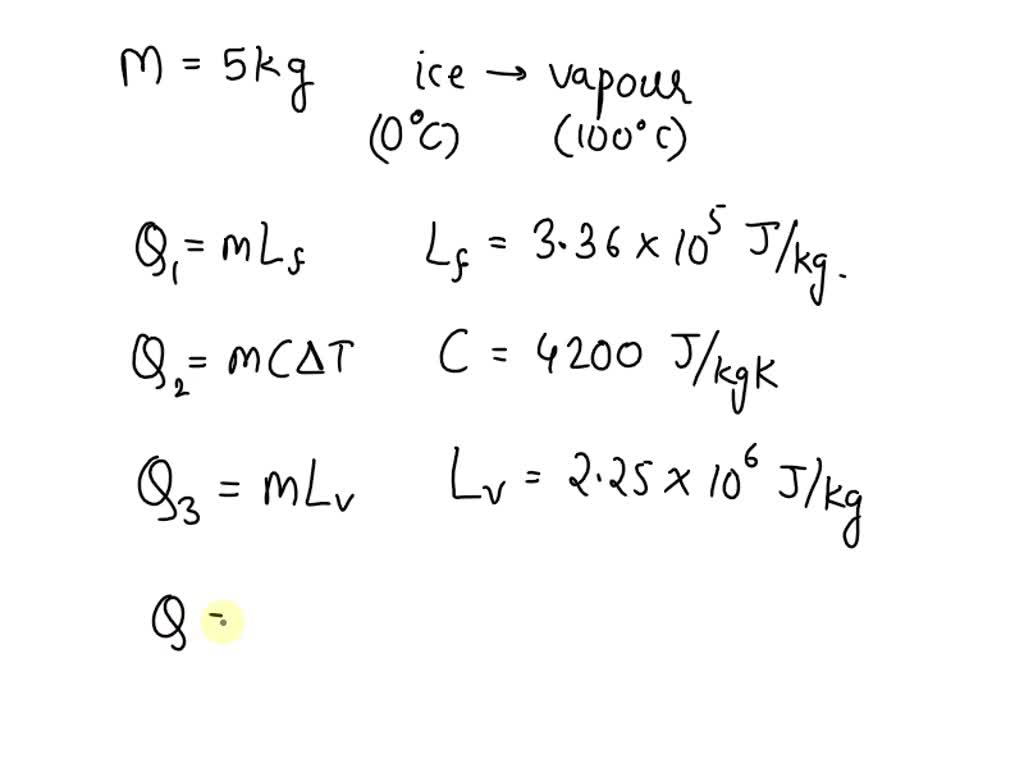 M = 5kg ice → vapour
(0°C) (100°C)
Q₁ = mL_f L_f = 3.36 × 10⁵ J/kg.
Q₂ = mCΔT C = 4200 J/kgK
Q₃ = mLᵥ Lᵥ = 2.25 × 10⁶ J/kg
Q =